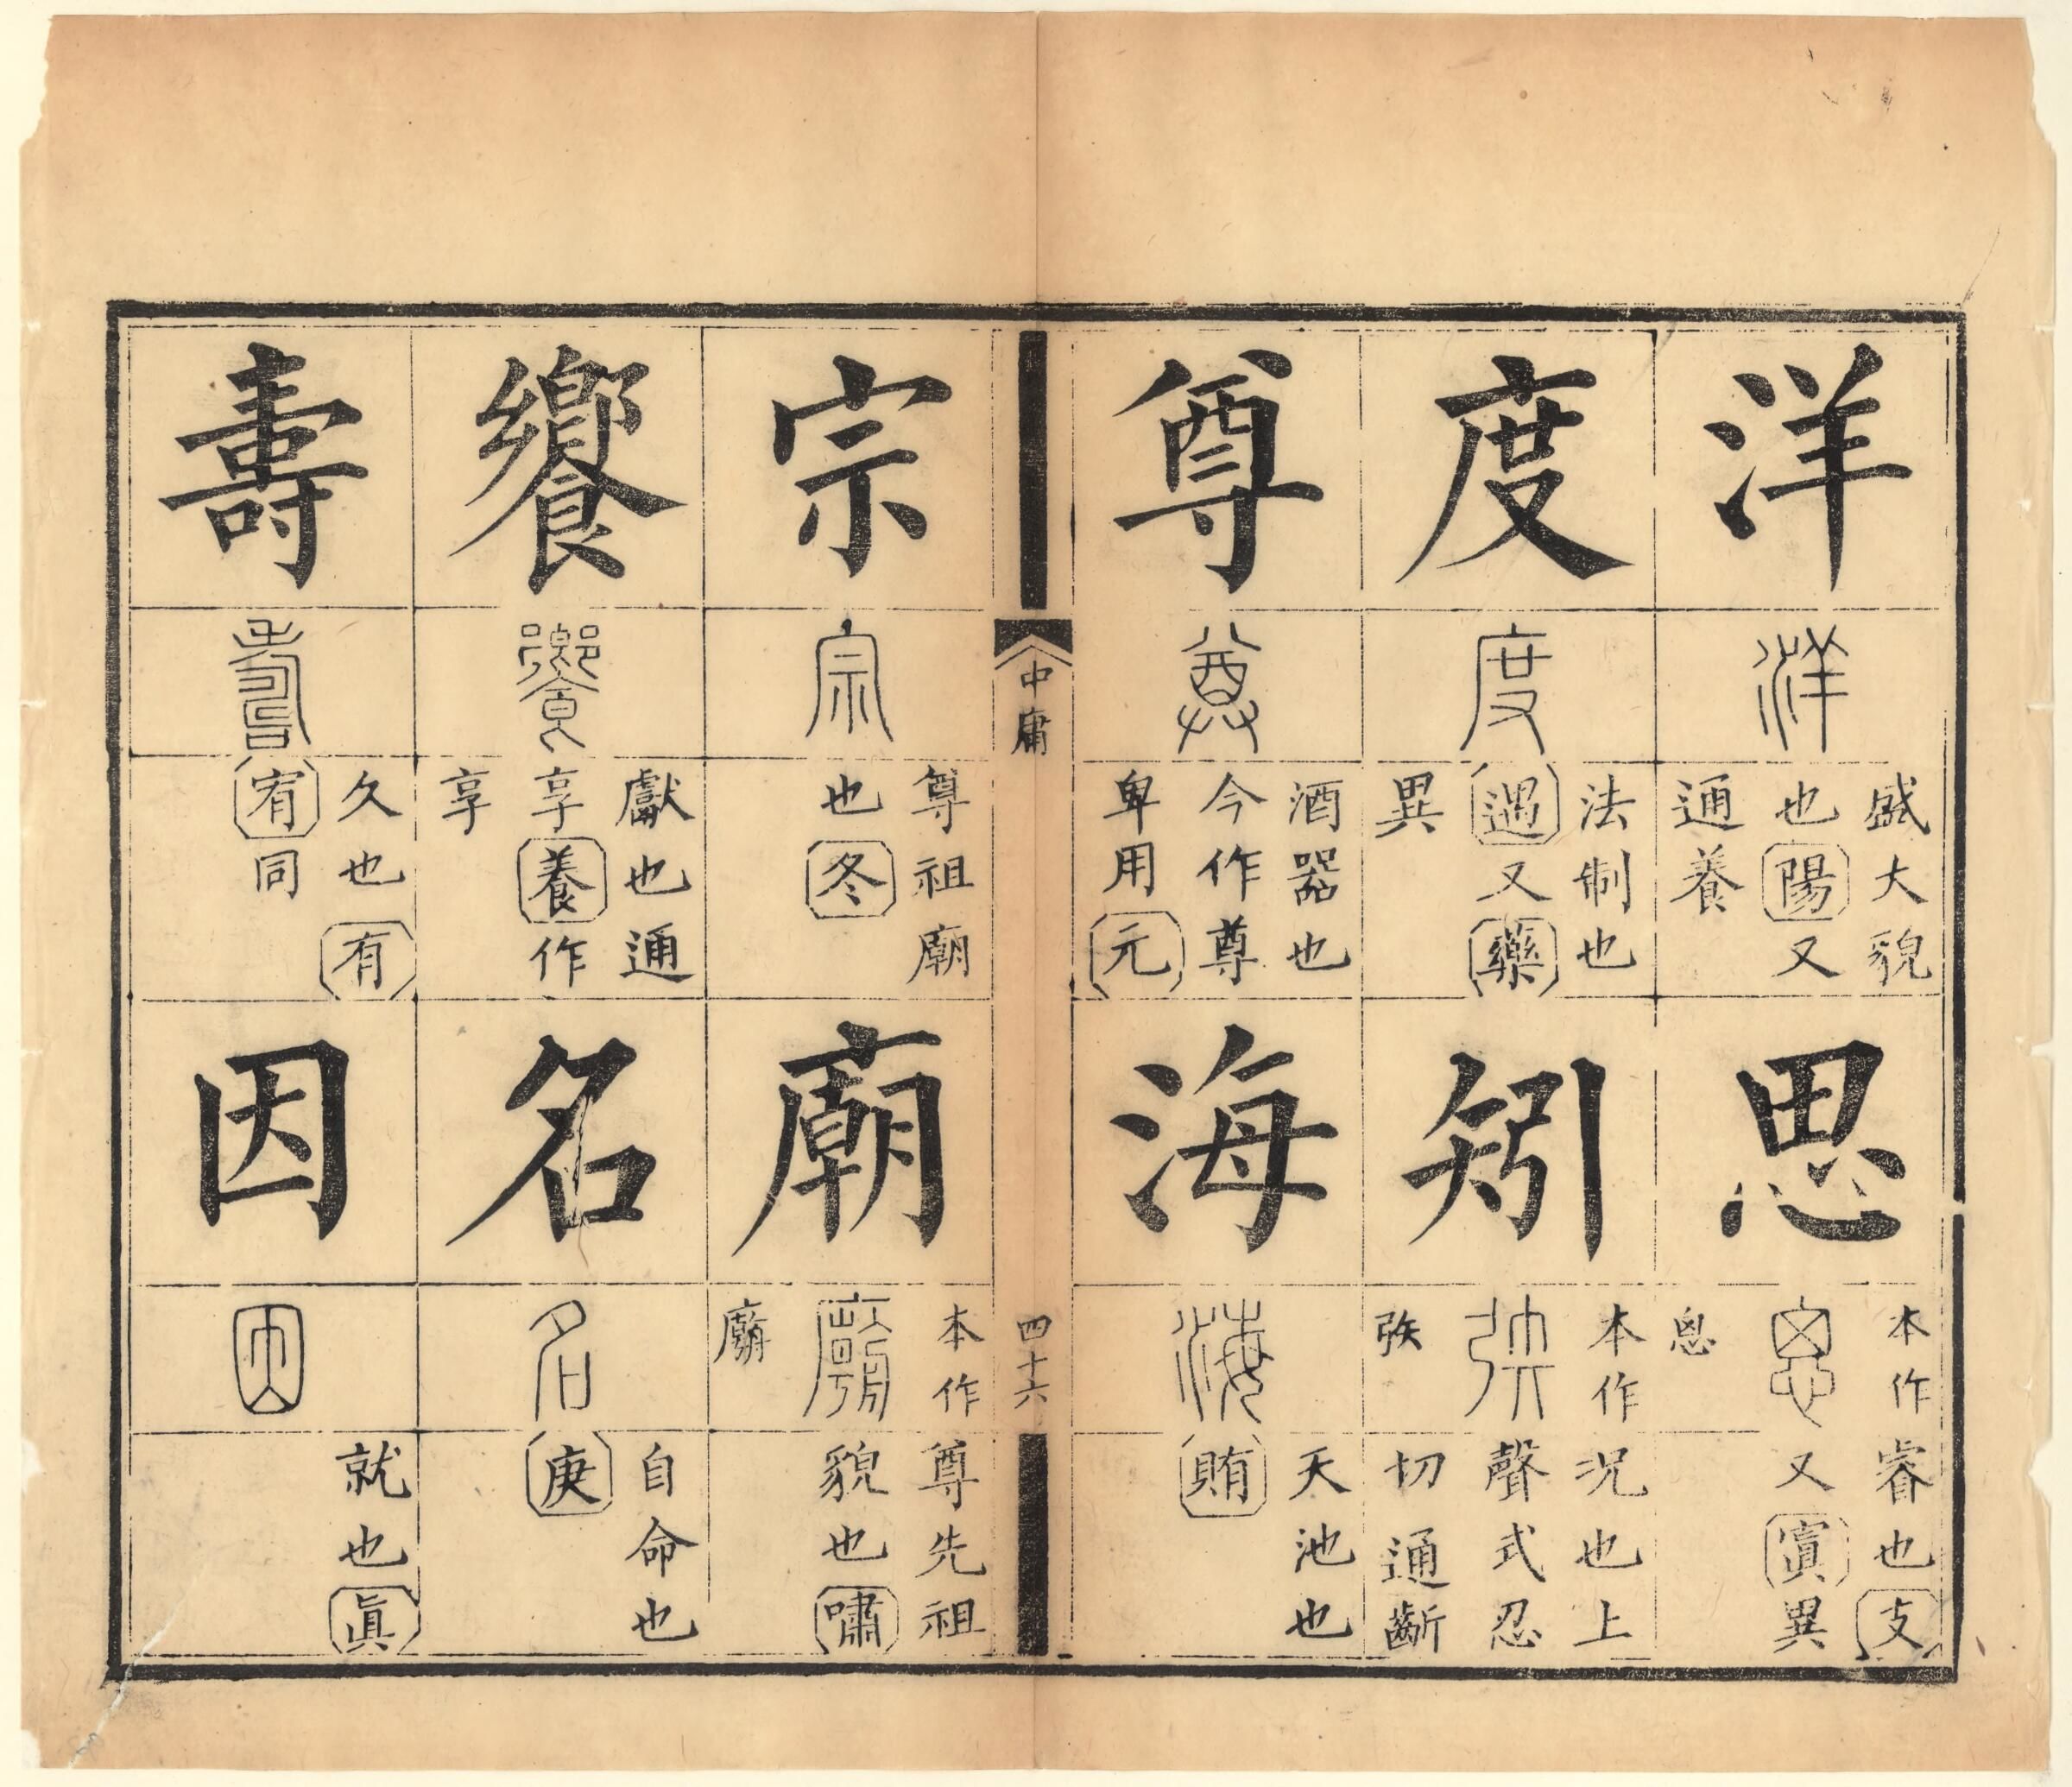 洋
洋
盛大貌
也陽又
通養
思
本作
思
恖
睿也支
又寘異
度
度
法制也
遇又藥
異
矧
本作
弞
弞
况也上
聲式忍
切通齗
尊
尊
酒器也
今作尊
卑用元
海
海
天池也
賄
中庸
四十六
宗
宗
尊祖廟
也冬
廟
本作
廟
尊先祖
貌也嘯
饗
饗
獻也通
享養作
享
名
名
自命也
庚
壽
壽
久也有
宥同
因
因
就也眞